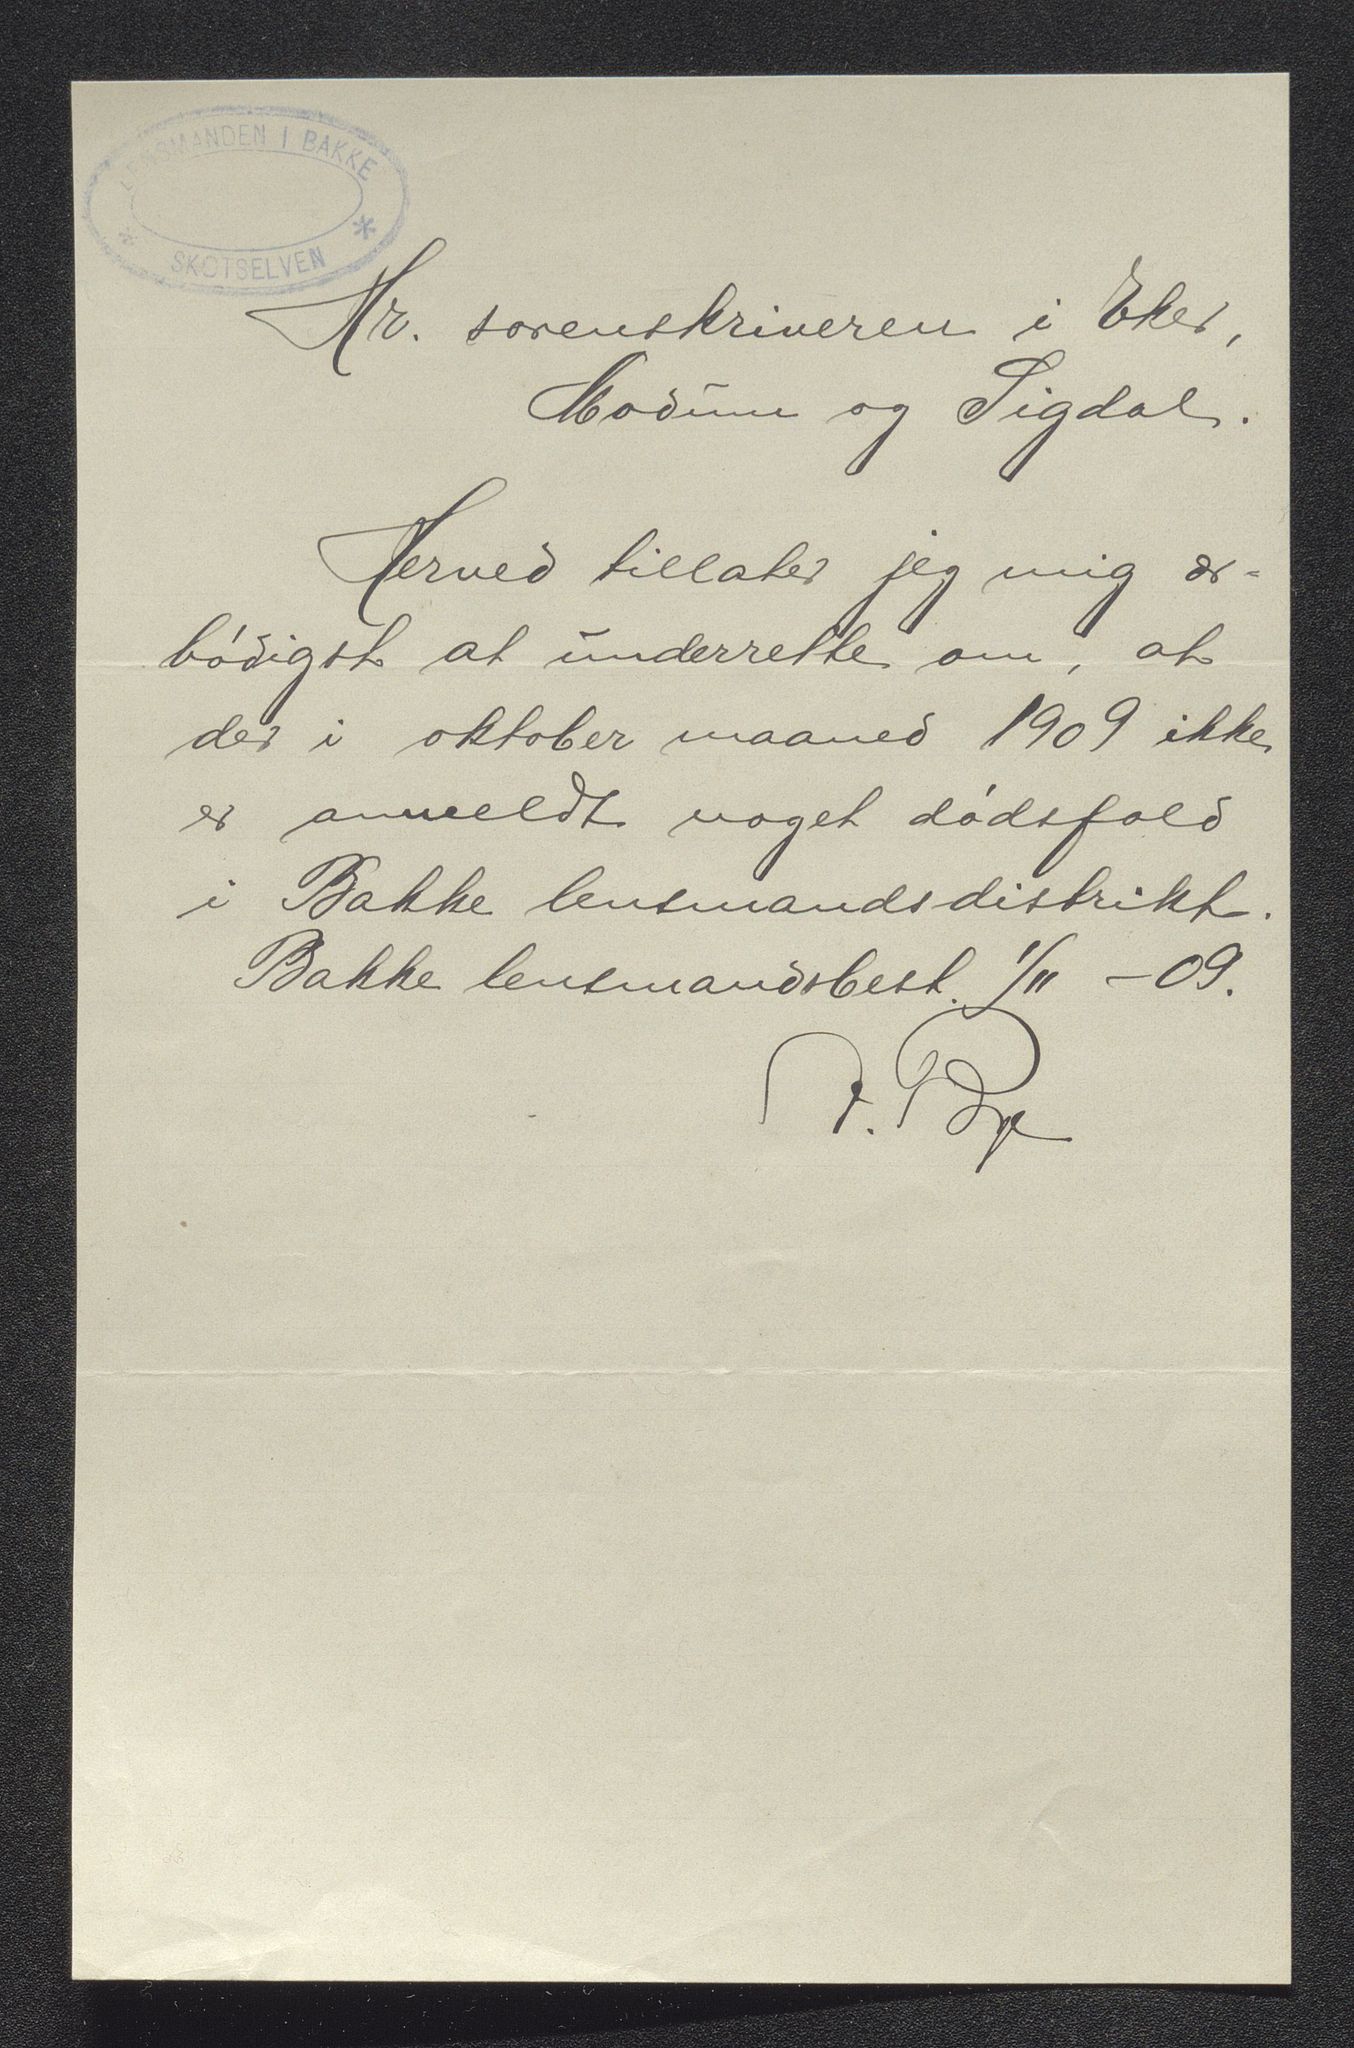 LENSMANDEN I BAKKE
* *
SKOTSELVEN
Hr. sorenskriveren i Eker,
Modum og Sigdal.
Herved tillater jeg mig ær-
bødigst at underrette om, at
der i oktober maaned 1909 ikke
er anmeldt noget dødsfald
i Bakke lensmandsdistrikt.
Bakke lensmandsbest. 1/11 - 09.
Bye